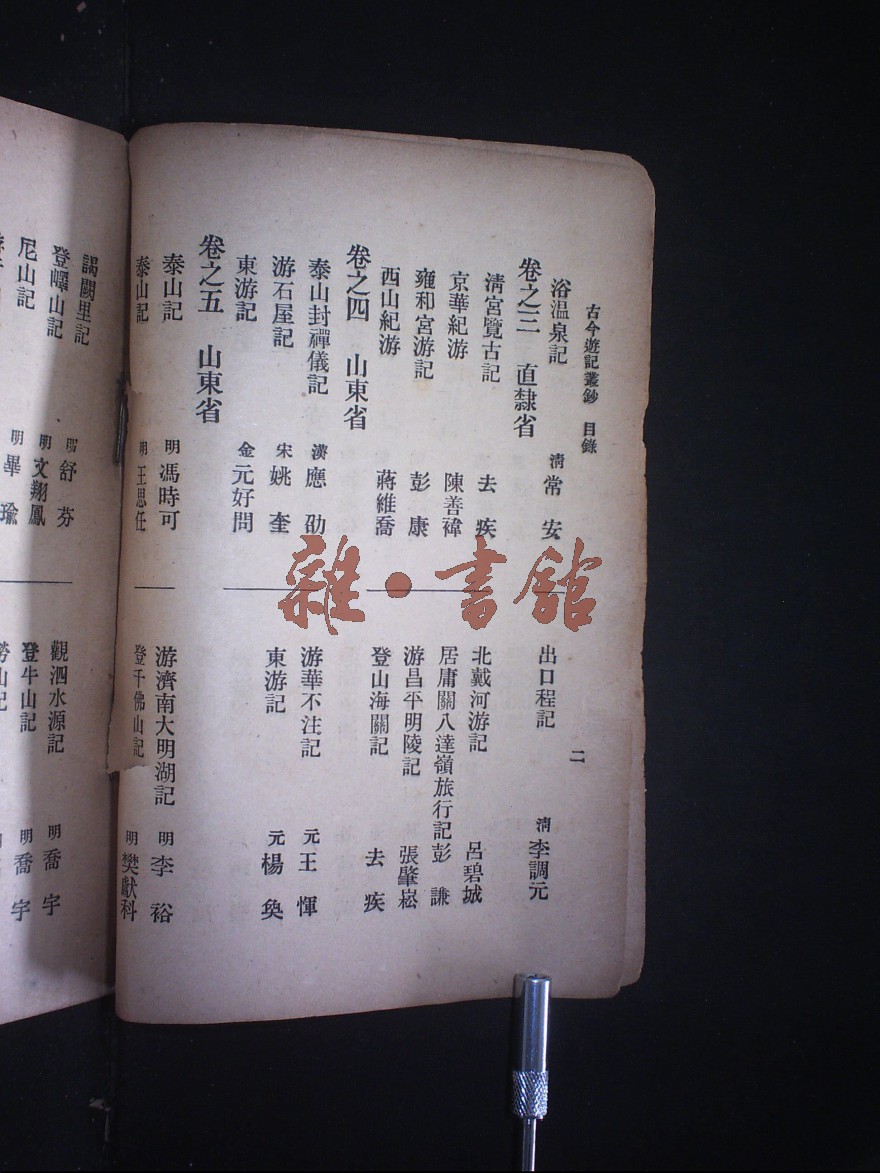 古今遊記叢鈔　目錄
二
浴溫泉記　清　常安
卷之三　直隸省
清宮覽古記　去疾
京華紀游　陳善禕
雍和宮游記　彭康
西山紀游　蔣維喬
卷之四　山東省
泰山封禪儀記　漢　應劭
游石屋記　宋　姚奎
東游記　金　元好問
卷之五　山東省
泰山記　明　馮時可
泰山記　明　王思任
出口程記　清　李調元
北戴河游記　呂碧城
居庸關八達嶺旅行記　彭謙
游昌平明陵記　張肇崧
登山海關記　去疾
游華不注記　元　王惲
東游記　元　楊奐
游濟南大明湖記　明　李裕
登千佛山記　明　樊獻科
謁闕里記　明　舒芬
登嶧山記　明　文翔鳳
尼山記　明　畢瑜
觀泗水源記　明　喬宇
登牛山記　明　喬宇
勞山記
雜·書館